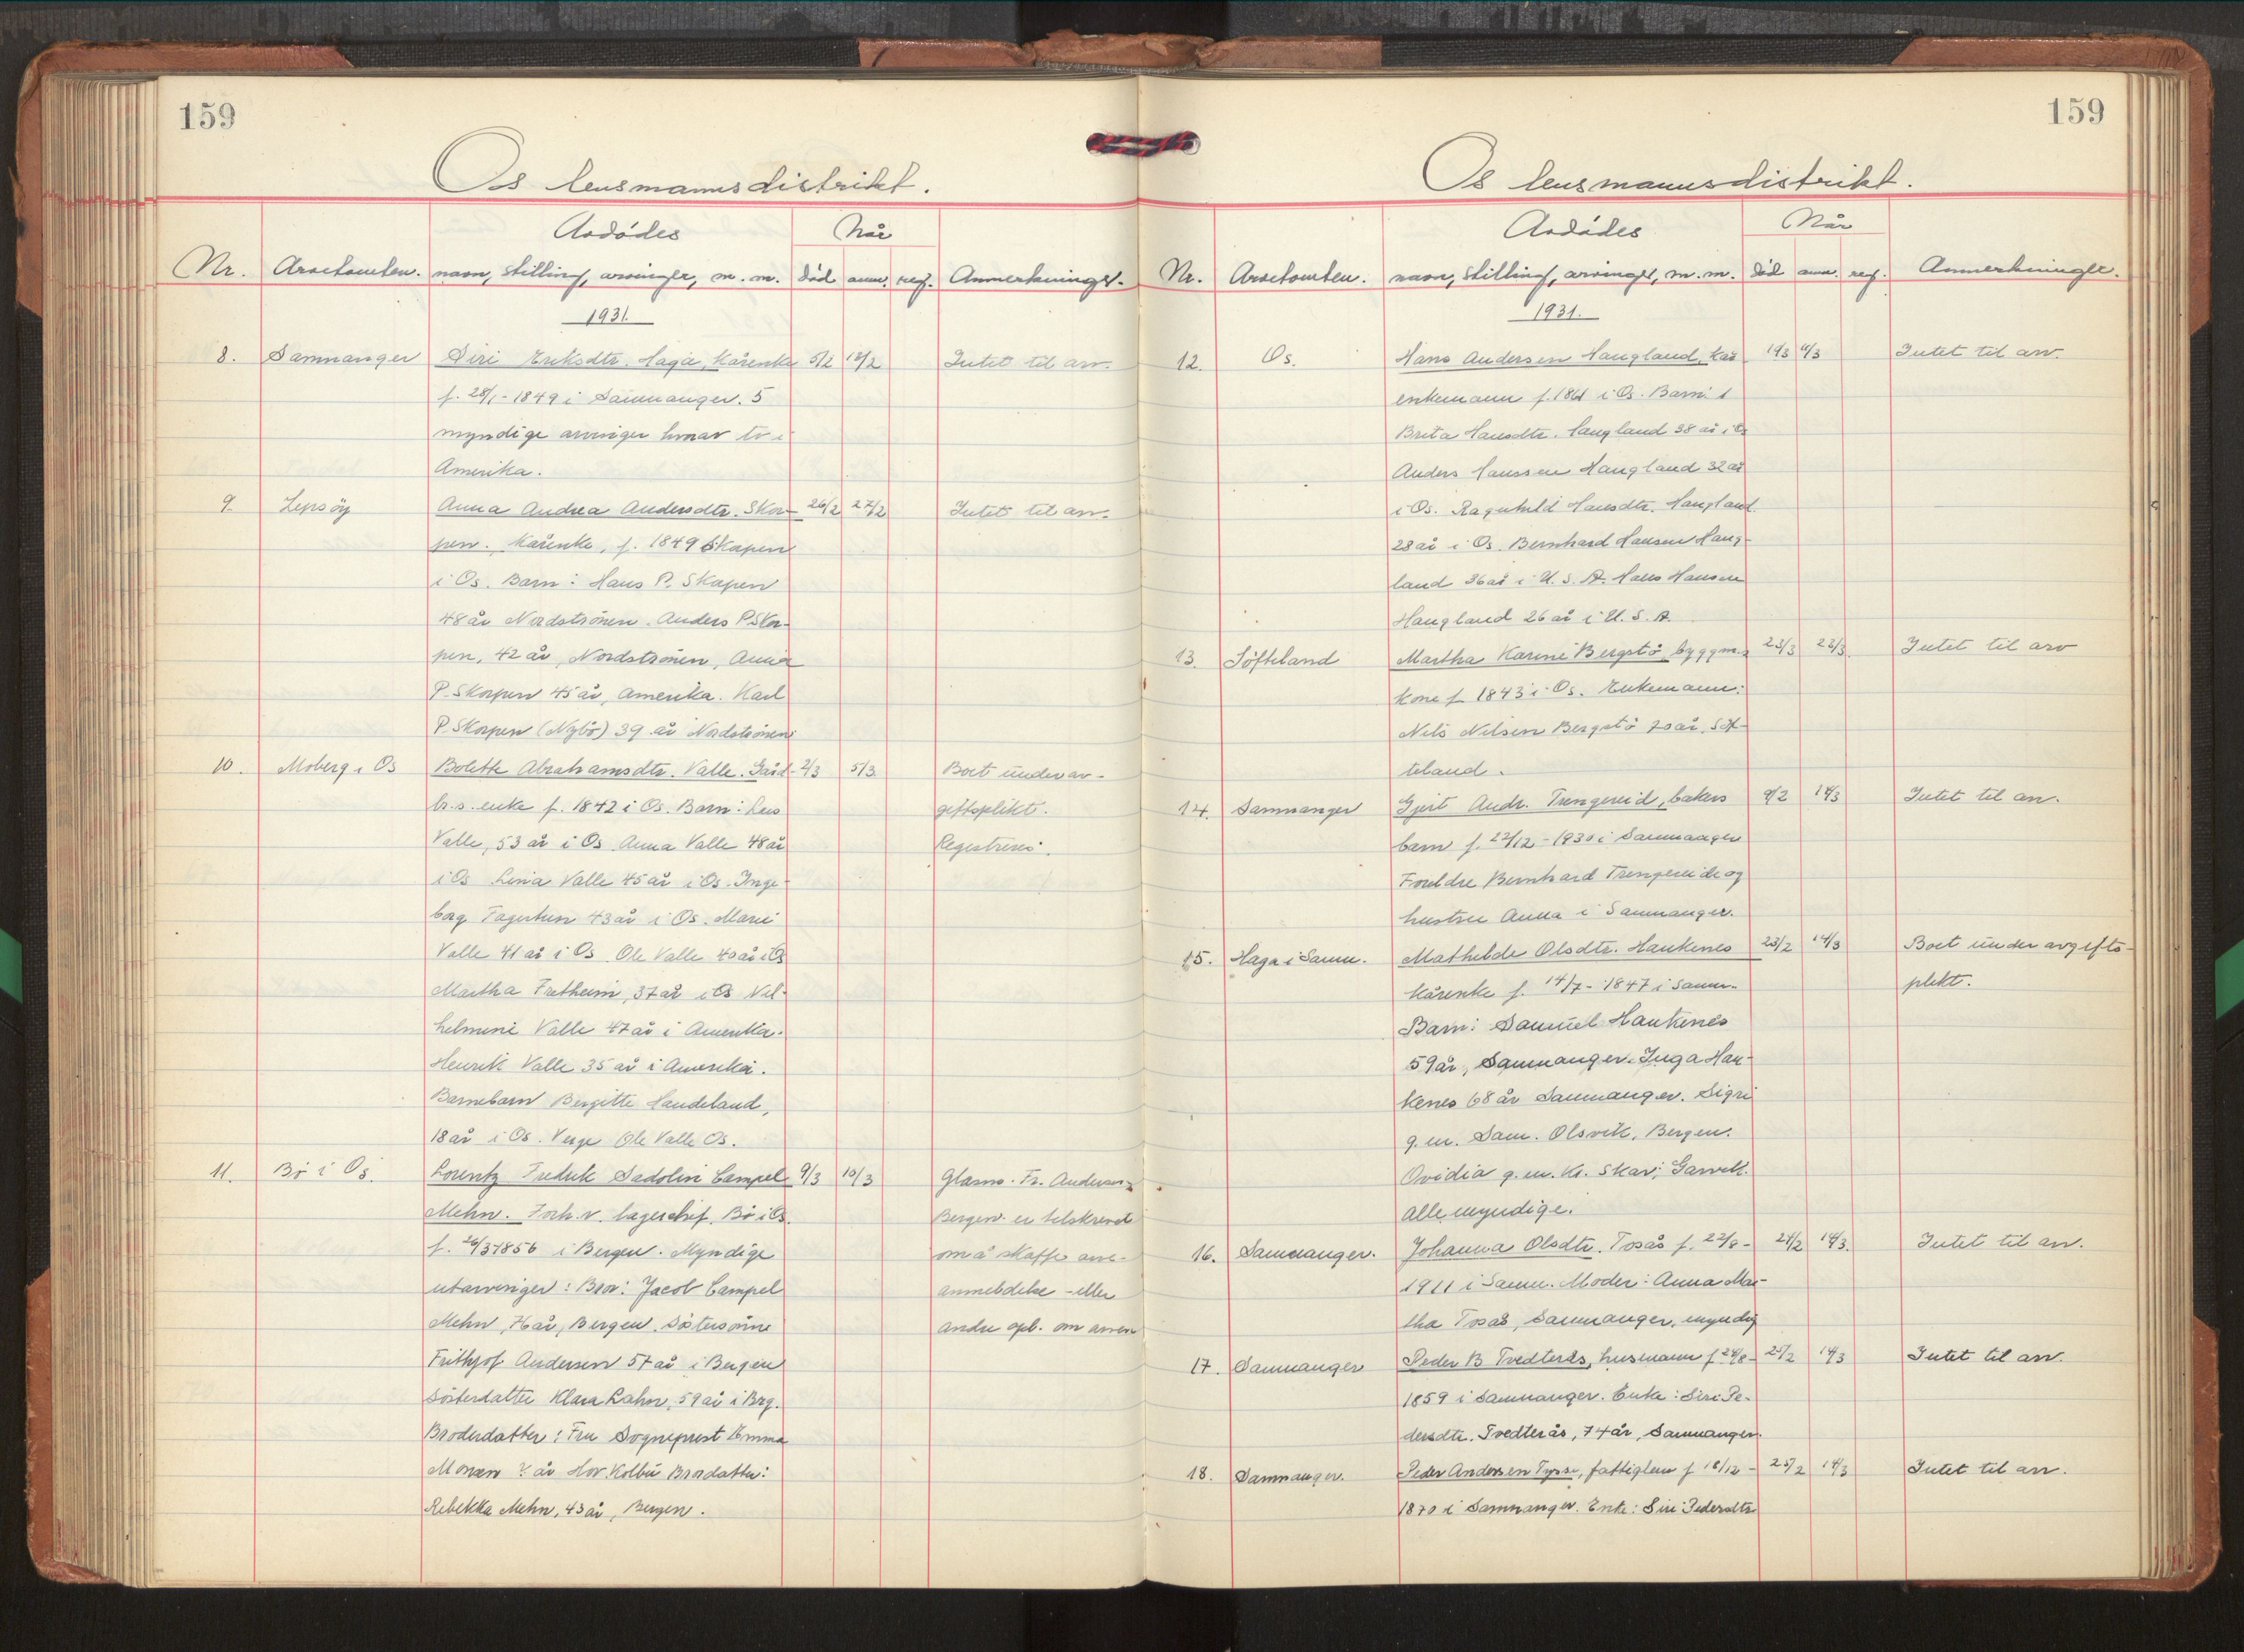 159
Os lensmannsdistrikt.
Avdødes Når
Nr. Åstomten. navn, stilling, arvinger, m. m. død anm. reg. Anmerkninger.
1931.
8. Samnanger Siri Eriksdtr. Haga, kårenke 5/2 12/2 Intet til arv.
f. 28/1 - 1849 i Samnanger. 5
myndige arvinger hvorav to i
Amerika.
9. Lepsöy Anna Andrea Andersdtr. Skor- 26/2 27/2 Intet til arv.
pen. Kårenke, f. 1849 Skapen
i Os. Barn: Hans P. Skapen
48 år Nordströnen. Anders P. Skor-
pen, 42 år, Nordströnen, Anna
P. Skorpen 45 år, Amerika. Karl
P. Skorpen (Nybö) 39 år Nordströnen
10. Moberg i Os Bolette Abrahamsdtr. Valle. Gård- 2/3 5/3 Boet under av-
br.s. enke f. 1842 i Os. Barn: Lars giftsplikt.
Valle, 53 år i Os. Anna Valle 48 år Registreres.
i Os Lina Valle 45 år i Os. Inge-
borg Tøgertun 43 år i Os. Marie
Valle 41 år i Os. Ole Valle 40 år i Os
Martha Fretheim, 37 år i Os Vil-
helmine Valle 47 år i Amerika.
Henrik Valle 35 år i Amerika.
Barnebarn Bergitte Haudeland,
18 år i Os. Verge Ole Valle Os.
11. Bö i Os. Lorentz Fredrik Sadolin Campel 9/3 10/3 Glasm. Fr. Andersen,
Mehn. Forh.v. lagerchef. Bö i Os. Bergen er tilskrevet
f. 26/3 1856 i Bergen. Myndige om å skaffe arve-
utarvinger: Bror: Jacob Campel anmeldelse - eller
Mehn, 76 år, Bergen. Söstersönn andre opl. om arven
Frithjof Andersen 57 år i Bergen
Sösterdatter Klara Lahn, 59 år i Brg.
Broderdatter: Fru Sogneprest Emma
Monsen ? år Hov. Kolbu Brordatter:
Rebekka Mehn, 43 år, Bergen.
159
Os lensmannsdistrikt.
Avdødes Når
Nr. Åstomten. navn, stilling, arvinger, m. m. død anm. reg. Anmerkninger.
1931.
12. Os. Hans Andersen Haugland, kår- 11/3 11/3 Intet til arv.
enkemann f. 1861 i Os. Barn:
Brita Hansdtr. Haugland 38 år i Os
Anders Hanssen Haugland 32 år
i Os. Ragnhild Hansdtr. Haugland
28 år i Os. Bernhard Hansen Haug-
land 36 år i U. S. A. Hans Hansen
Haugland 26 år i U. S. A.
13. Söfteland Martha Karine Bergstö, byggm.s 23/3 23/3 Intet til arv
kone f. 1843 i Os. Enkemann:
Nils Nilsen Bergstö 70 år, Söf-
teland.
14. Samnanger Gjert Andr. Trengereid, bakers 9/2 14/3 Intet til arv.
barn f. 22/12 - 1930 i Samnanger
Foreldre Bernhard Trengereide og
hustru Anna i Samnanger.
15. Haga i Samn. Mathilde Olsdtr. Haukenes 23/2 14/3 Boet under avgifts-
Kårenke f. 14/7 - 1847 i Samn. plikt.
Barn: Samuel Haukenes
59 år, Samnanger. Inga Hau-
kenes 68 år Samnanger. Sigri
g. m. Sam. Olsvik, Bergen.
Ovidia g. m. Kr. Skar, Garvik.
Alle myndige.
16. Samnanger. Johanna Olsdtr. Tosås f. 22/8 - 24/2 14/3. Intet til arv.
1911 i Samn. Moder: Anna Mar-
tha Tosås, Samnanger, myndig
17. Samnanger Peder B. Tvedterås, husmann f. 24/8 - 25/2 14/3 Intet til arv.
1859 i Samnanger. Enke: Siri Pe-
dersdtr. Tvedterås, 74 år, Samnanger.
18. Samnanger. Peder Andersen Tysse, fattiglem f. 18/12 - 25/2 14/3 Intet til arv.
1870 i Samnanger. Enke: Siri Pedersdtr